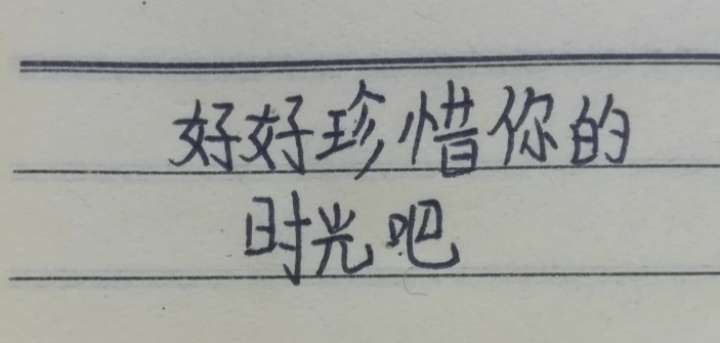 好好珍惜你的
时光吧